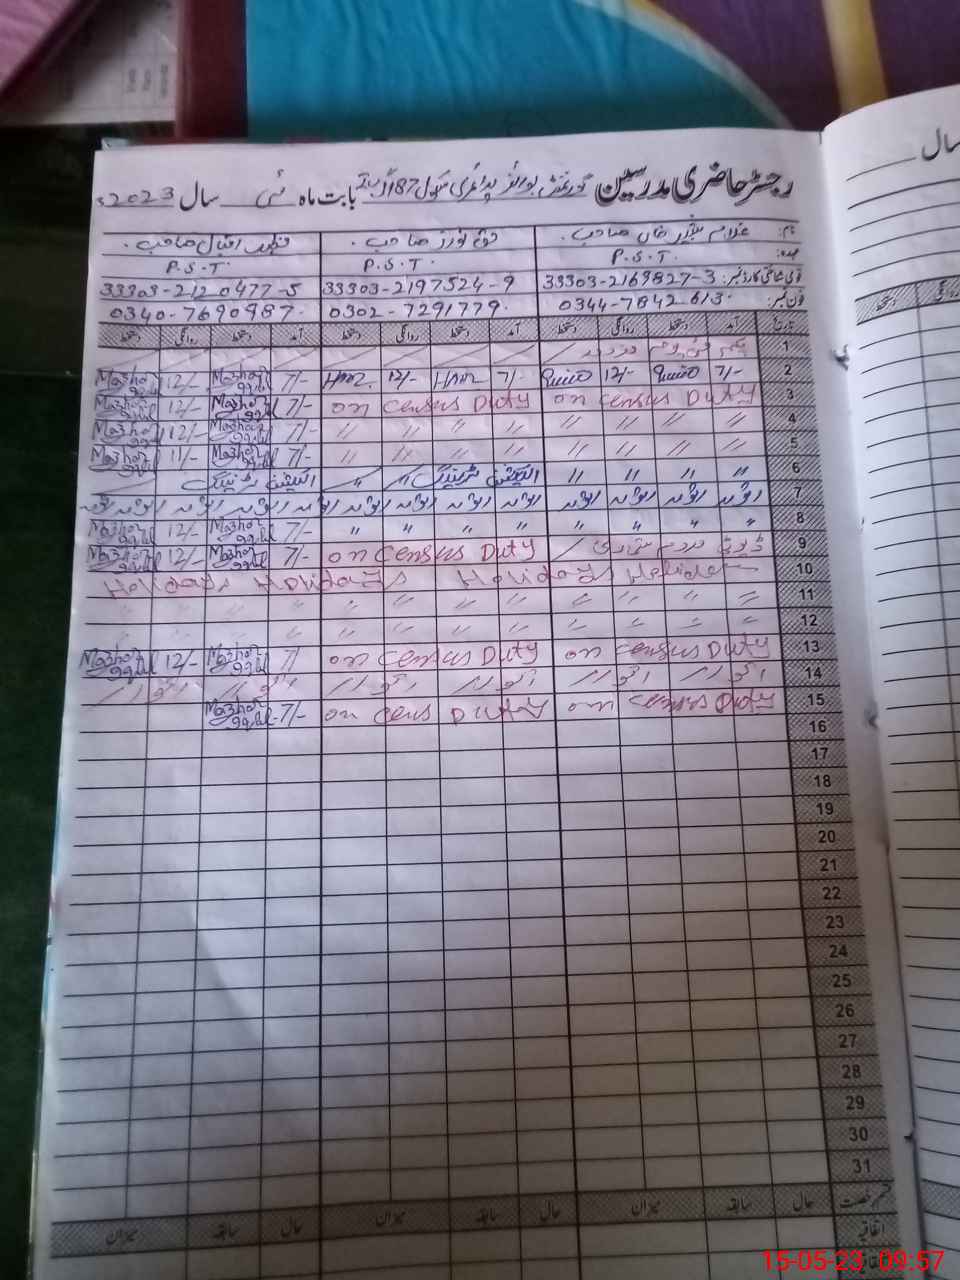 سال
رجسٹر حاضری مدرسین گورنمنٹ بوائز پرائمری سکول 187 بابت ماہ مئی سال 2023
نام: غلام خان صاحب. نواز صاحب. اقبال صاحب.
عہدہ: P.S.T. P.S.T. P.S.T.
قومی شناختی کارڈ نمبر: 33303-2169827-3 33303-2197524-9 33303-2120477-5
فون نمبر: 0344-7842613. 0302-7291779. 0340-7690987.
تاریخ آمد دستخط روانگی دستخط آمد دستخط روانگی دستخط آمد دستخط روانگی دستخط
1 یکم مئی
2 7/- 12/- 7/- 12/- 7/- Mazhar Iqbal 12/- Mazhar Iqbal
3 on census Duty on census Duty 7/- Mazhar Iqbal 12/- Mazhar Iqbal
4 〃 〃 〃 〃 〃 〃 〃 〃 7/- Mazhar Iqbal 12/- Mazhar Iqbal
5 〃 〃 〃 〃 〃 〃 〃 〃 7/- Mazhar Iqbal 11/- Mazhar Iqbal
6 〃 〃 〃 〃 الیکشن ٹریننگ 〃 〃 الیکشن ٹریننگ
7 اتوار اتوار اتوار اتوار اتوار اتوار اتوار اتوار اتوار اتوار اتوار اتوار
8 〃 〃 〃 〃 〃 〃 〃 〃 7/- Mazhar Iqbal 12/- Mazhar Iqbal
9 ڈیوٹی مردم شماری on census Duty 7/- Mazhar Iqbal 12/- Mazhar Iqbal
10 Holidays Holidays Holidays Holiday
11 〃 〃 〃 〃 〃 〃 〃 〃 〃 〃 〃 〃
12 〃 〃 〃 〃 〃 〃 〃 〃 〃 〃
13 on census Duty on census Duty 7/ Mazhar Iqbal 12/- Mazhar Iqbal
14 اتوار اتوار اتوار اتوار اتوار اتوار
15 on census Duty on cens Duty 7/- Mazhar Iqbal
16
17
18
19
20
21
22
23
24
25
26
27
28
29
30
31
قسم رخصت حال سابقہ میزان حال سابقہ میزان حال سابقہ میزان
اتفاقیہ
15-05-23 09:57